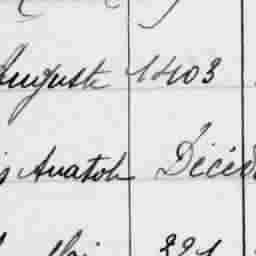 Auguste 1403
Anatole Décéd
221